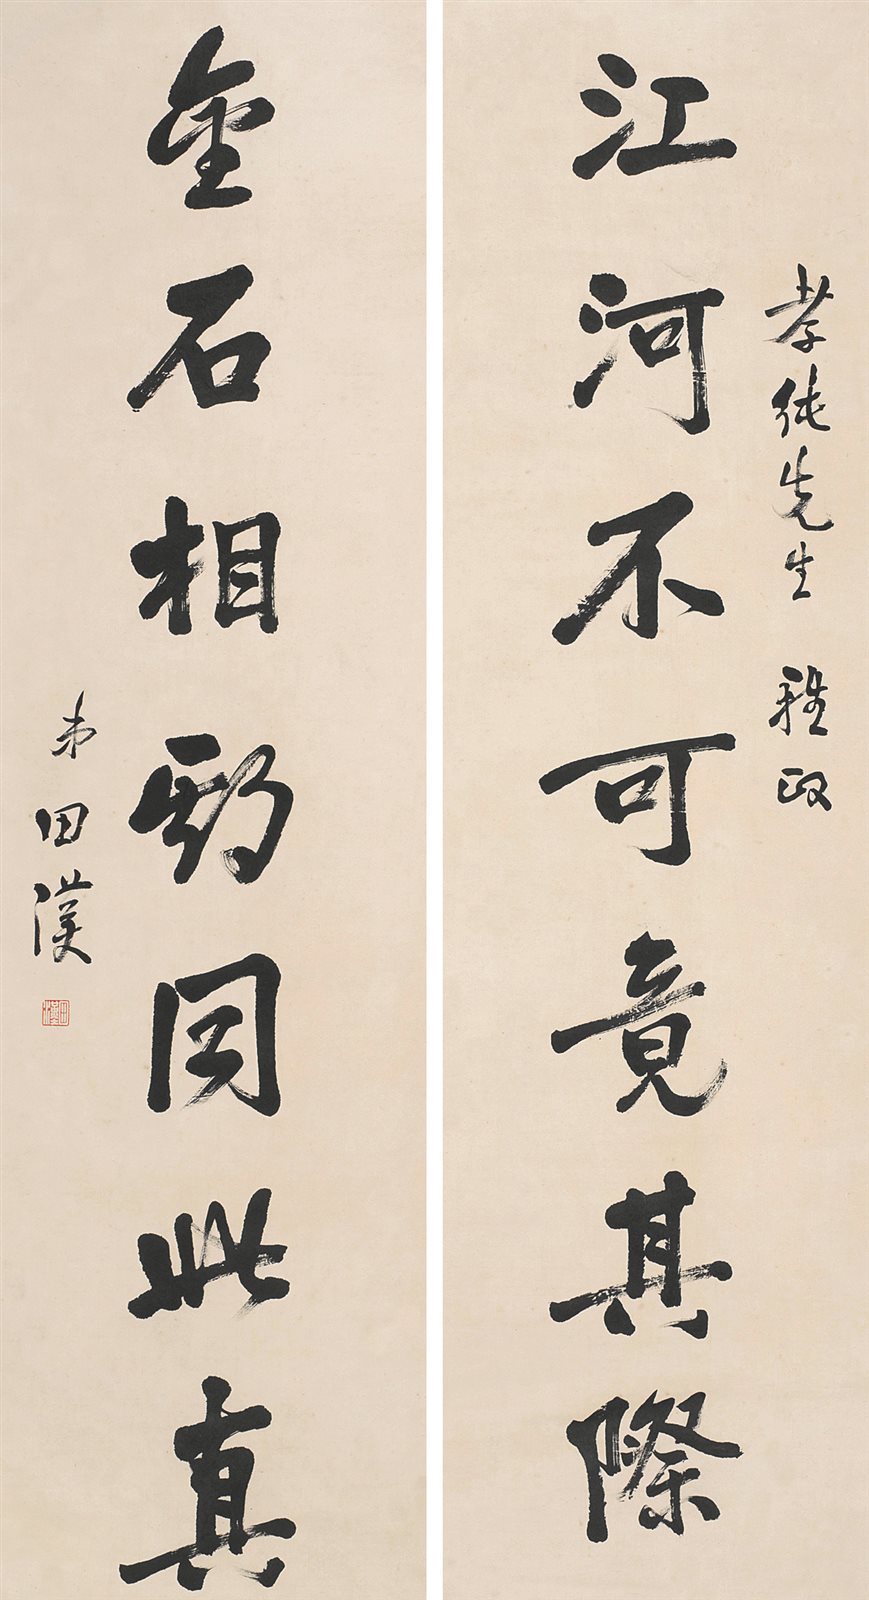 孝純先生 雅政
江河不可竟其際
金石相同此真
弟田漢
田漢